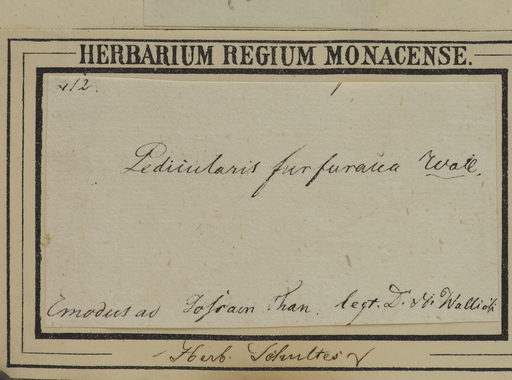 HERBARIUM REGIUM MONACENSE.
412.
Pedicularis furfuracea Wall.
Emodus ad Gossain Than. legt. D. N. Wallich
Herb. Schultes